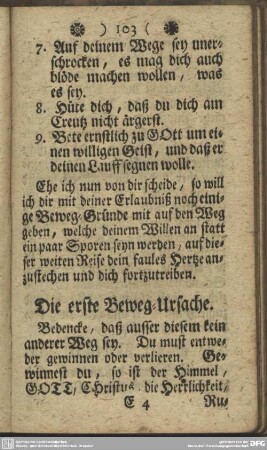 ) 103 (
7. Auf deinem Wege sey uner-
schrocken, es mag dich auch
blöde machen wollen, was
es sey.
8. Hüte dich, daß du dich am
Creutz nicht ärgerst.
9. Bete ernstlich zu GOtt um ei-
nen willigen Geist, und daß er
deinen Lauff segnen wolle.
Ehe ich nun von dir scheide, so will
ich dir mit deiner Erlaubniß noch eini-
ge Beweg-Gründe mit auf den Weg
geben, welche deinem Willen an statt
ein paar Sporen seyn werden, auf die-
ser weiten Reise dein faules Hertze an-
zustechen und dich fortzutreiben.
Die erste Beweg-Ursache.
Bedencke, daß ausser diesem kein
anderer Weg sey. Du must entwe-
der gewinnen oder verlieren. Ge-
winnest du, so ist der Himmel,
GOTT, CHristus, die Herrlichkeit,
E 4 Ru-